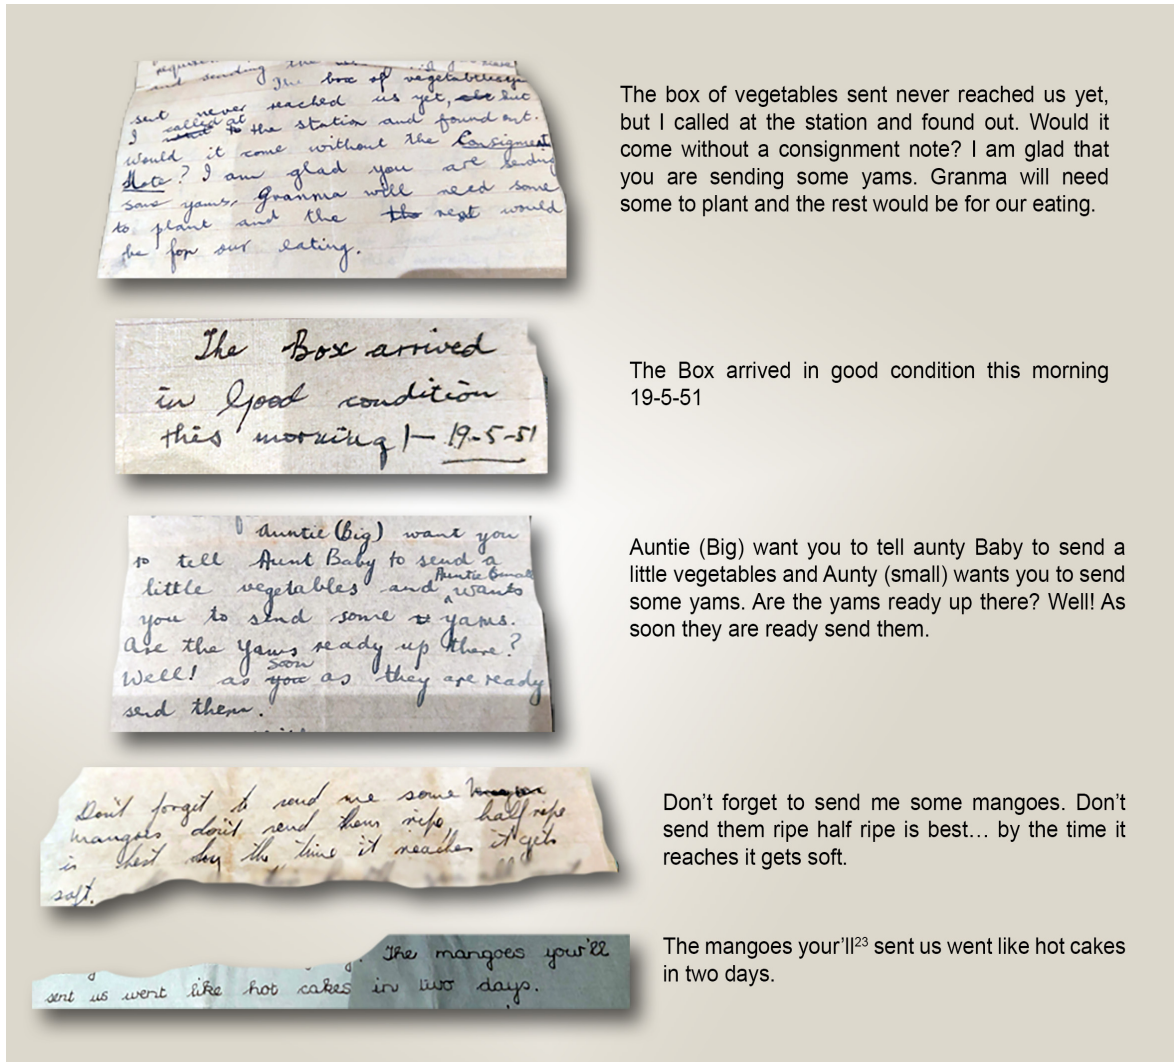 and sending the
The box of vegetables you
sent never reached us yet, but
I called at the station and found out.
Would it come without the Consignment
Note? I am glad you are sending
some yams. Granma will need some
to plant and the rest would
be for our eating.
The box of vegetables sent never reached us yet,
but I called at the station and found out. Would it
come without a consignment note? I am glad that
you are sending some yams. Granma will need
some to plant and the rest would be for our eating.
The Box arrived
in Good condition
this morning 19-5-51
The Box arrived in good condition this morning
19-5-51
Auntie (Big) want you
to tell Aunt Baby to send a
little vegetables and Auntie Small wants
you to send some yams.
Are the yams ready up there?
Well! as soon as they are ready
send them.
Auntie (Big) want you to tell aunty Baby to send a
little vegetables and Aunty (small) wants you to send
some yams. Are the yams ready up there? Well! As
soon they are ready send them.
Don't forget to send me some
mangoes don't send them ripe, half ripe
is best by the time it reaches it gets
soft.
Don’t forget to send me some mangoes. Don’t
send them ripe half ripe is best… by the time it
reaches it gets soft.
The mangoes your'll
sent us went like hot cakes in two days.
The mangoes your’ll23 sent us went like hot cakes
in two days.